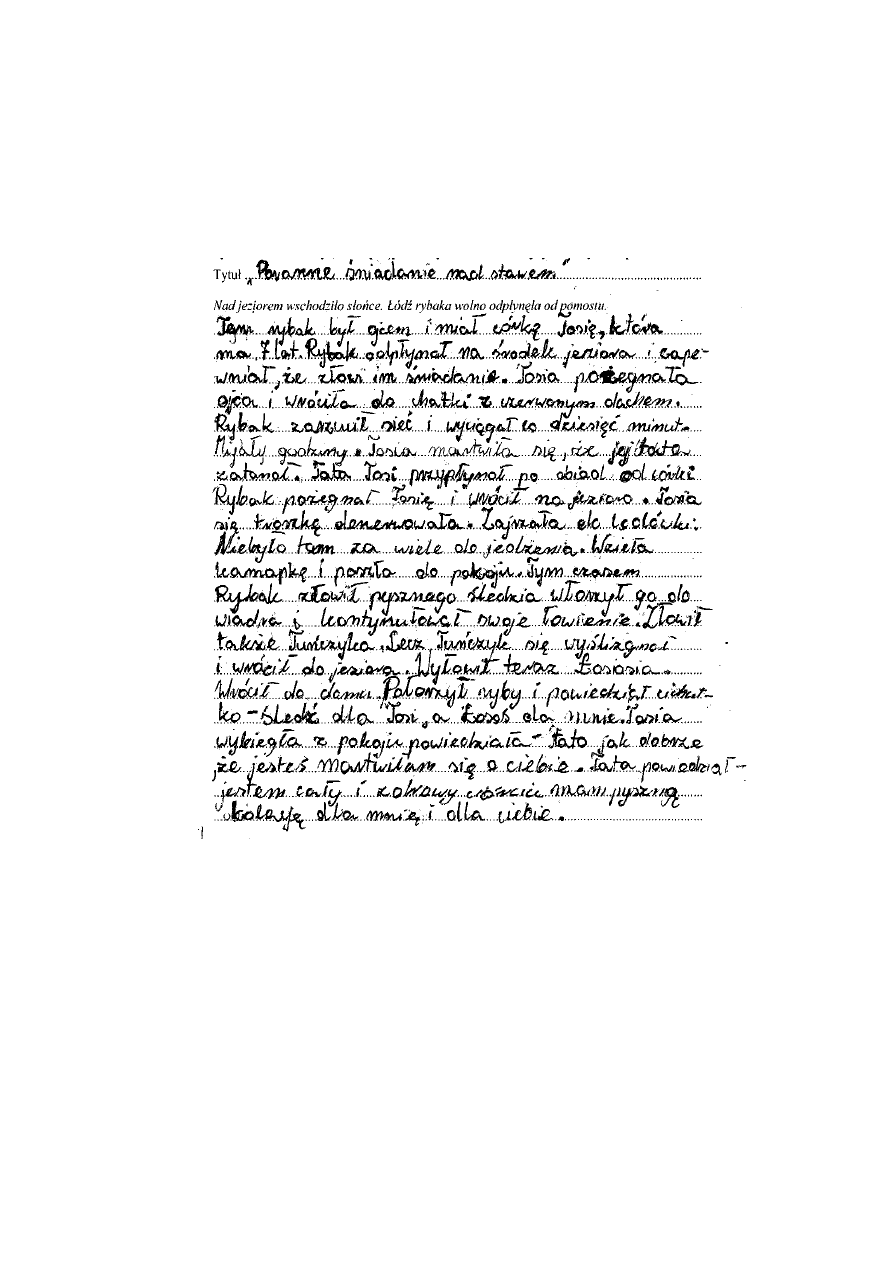 Tytuł „Poranne śniadanie nad stawem"
Nad jeziorem wschodziło słońce. Łódź rybaka wolno odpłynęła od pomostu.
Tym rybak był ojcem i miał córkę Tosię, która
ma 7 lat. Rybak odpłynął na środek jeziora i zape-
wniał, że złowi im śniadanie. Tosia pożegnała
ojca i wróciła do chatki z czerwonym dachem.
Rybak zarzucił sieć i wyciągał co dziesięć minut.
Mijały godziny. Tosia martwiła się, że jej tata
zatonął. Tata Tosi przypłynął po obiad od córki
Rybak pożegnał Tosię i wrócił na jezioro. Tosia
się troszkę denerwowała. Zajrzała do lodówki.
Niebyło tam za wiele do jedzenia. Wzieła
kanapkę i poszła do pokoju. Tym czasem
Rybak złowił pysznego śledzia włorzył go do
wiadra i kontynułował swoje łowienie. Złowił
także Tuńczyka. Lecz Tuńczyk się wyślizgnoł
i wrócił do jeziora. Wyłowił teraz Łososia.
Wrócił do domu. Połorzył ryby i powiedział cichut-
ko - Śledź dla Tosi, a Łosoś dla mnie. Tosia
wybiegła z pokoju powiedziała - Tato jak dobrze
, że jesteś martwiłam się o ciebie. Tata powiedział -
jestem cały i zdrowy mam pyszną
kolację dla mnię i dla ciebie.